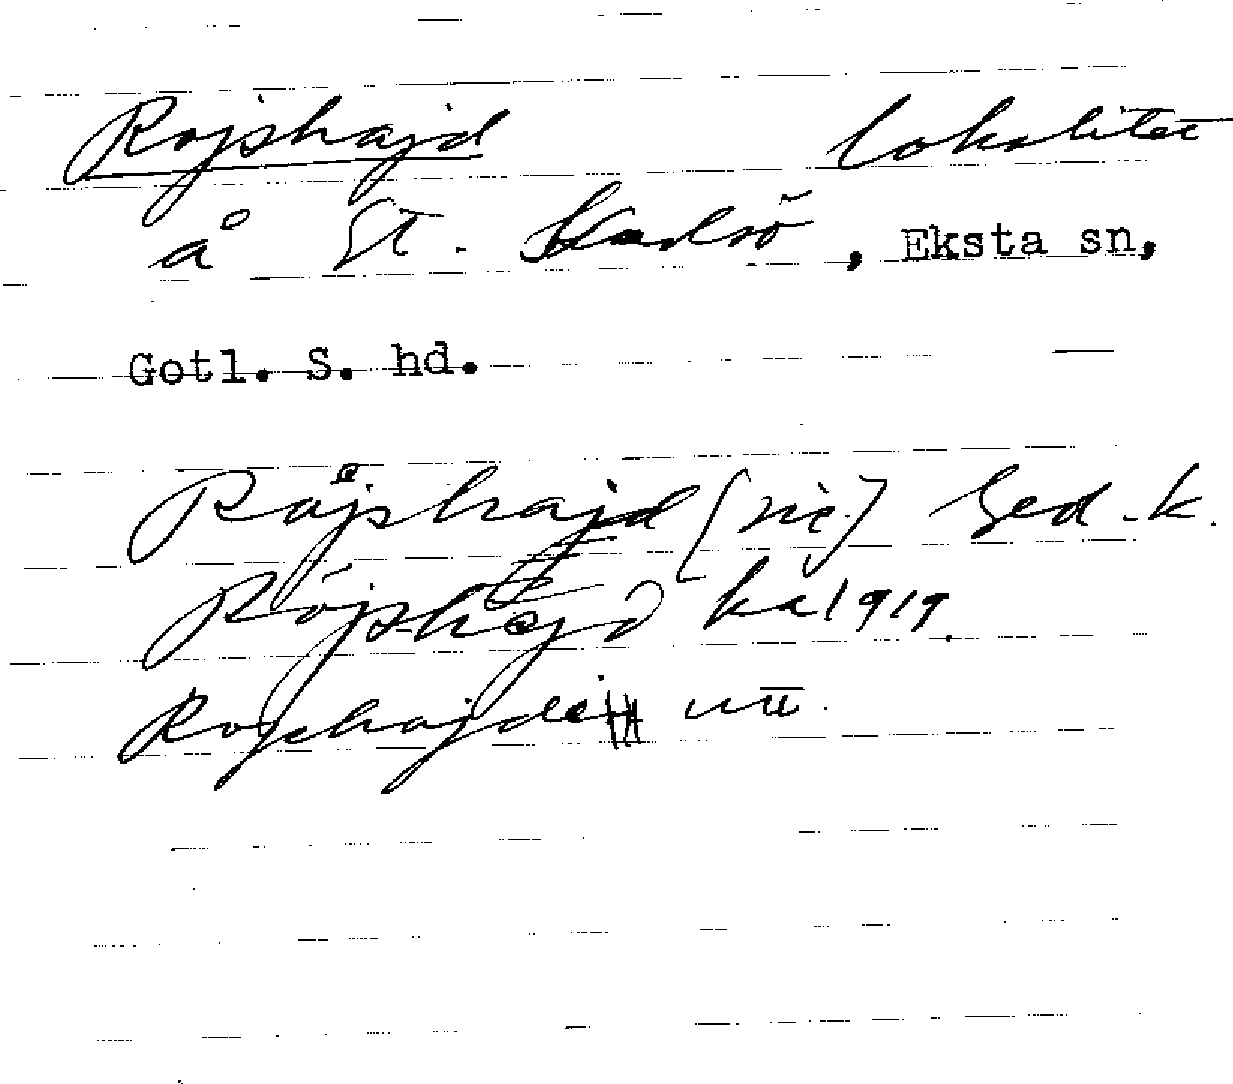 Rojshajd lokalitet
å St. Karlsö, Eksta sn,
Gotl. S. hd.
Röjshajd [sic] Ged. k.
Röjshejd ka 1919.
Rojshajde